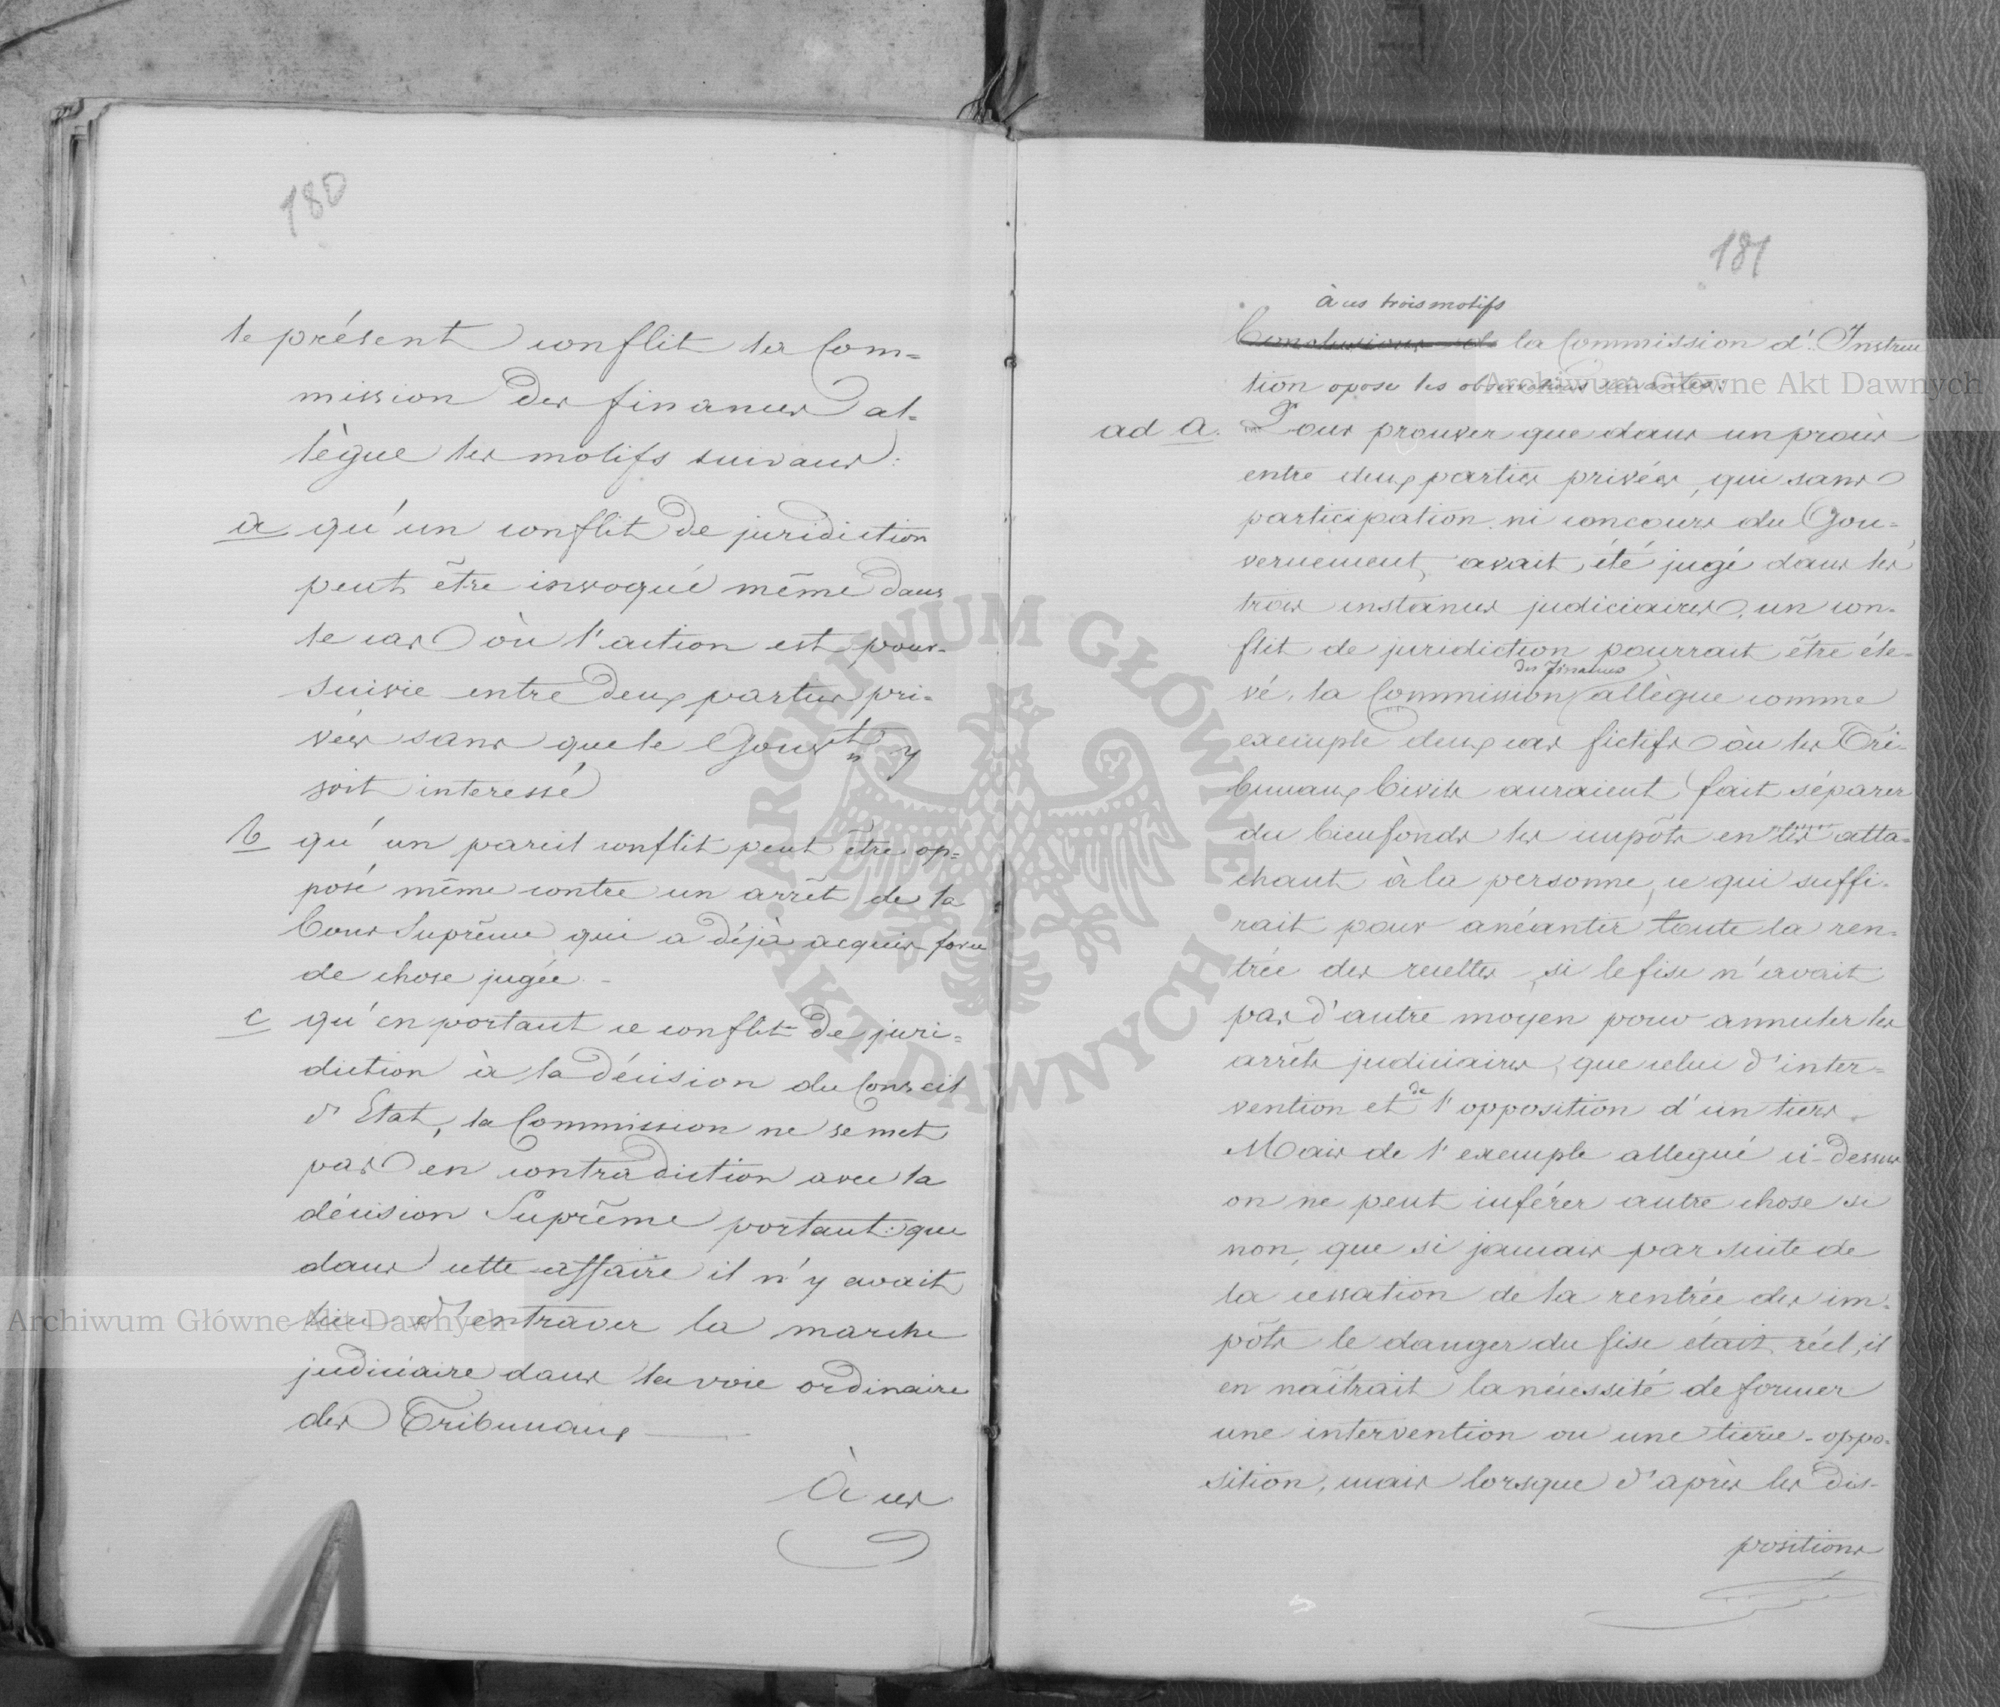 180
le présent conflit la Com=
mission des finances al=
lègue les motifs suivans:
a qu'un conflit de juridiction
peut être invoqué même dans
le cas où l'action est pour=
suivie entre deux parties pri=
vées sans que le Gouvnt y
soit interessé
b qu'un pareil conflit peut être op=
posé même contre un arrêt de la
Cour Suprême qui a déjà acquis force
de chose jugée -
c qu'en portant ce conflit de juri=
diction à la décision du Conseil
d'Etat, la Commission ne se met
pas en contradiction avec la
décision Suprême portant: que
dans cette affaire il n'y avait
lieu d'entraver la marche
judiciaire dans la voie ordinaire
des Tribunaux
À ces
181
à ces trois motifs
Conclusions de la Commission d'Instruc
tion opose les observations suivantes:
ad a. Pour prouver que dans un procès
entre deux parties privées, qui sans
participation ni concours du Gou=
vernement, avait été jugé dans les
trois instances judiciaires, un con=
flit de juridiction pourrait être éle=
des Finances
vé, la Commission allègue comme
exemple deux cas fictifs où les Tri=
bunaux Civils auraient fait séparer
du bienfonds les impôts en les atta=
chant à la personne, ce qui suffi=
rait pour anéantir toute la ren=
trée des recettes, si le fisc n'avait
pas d'autre moyen pour annuler les
arrêts judiciaires, que celui d'inter=
vention et de l'opposition d'un tiers.
Mais de l'exemple allegué ci-dessus
on ne peut inférer autre chose si
non, que si jamais par suite de
la cessation de la rentrée des im=
pôts le danger du fisc était réel, il
en naîtrait la nécessité de former
une intervention ou une tierce-oppo=
sition, mais lorsque d'après les dis=
positions
Archiwum Główne Akt Dawnych
Archiwum Główne Akt Dawnych
ARCHIWUM GŁÓWNE · AKT DAWNYCH ·